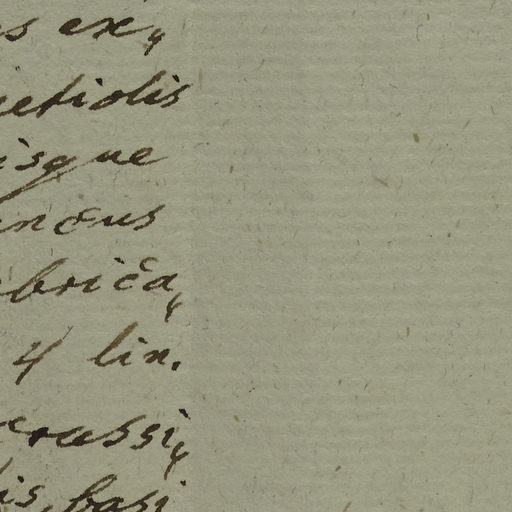 s ex,
etiolis
isque
ncus
brica,
4 lin.
crassi,
is, basi